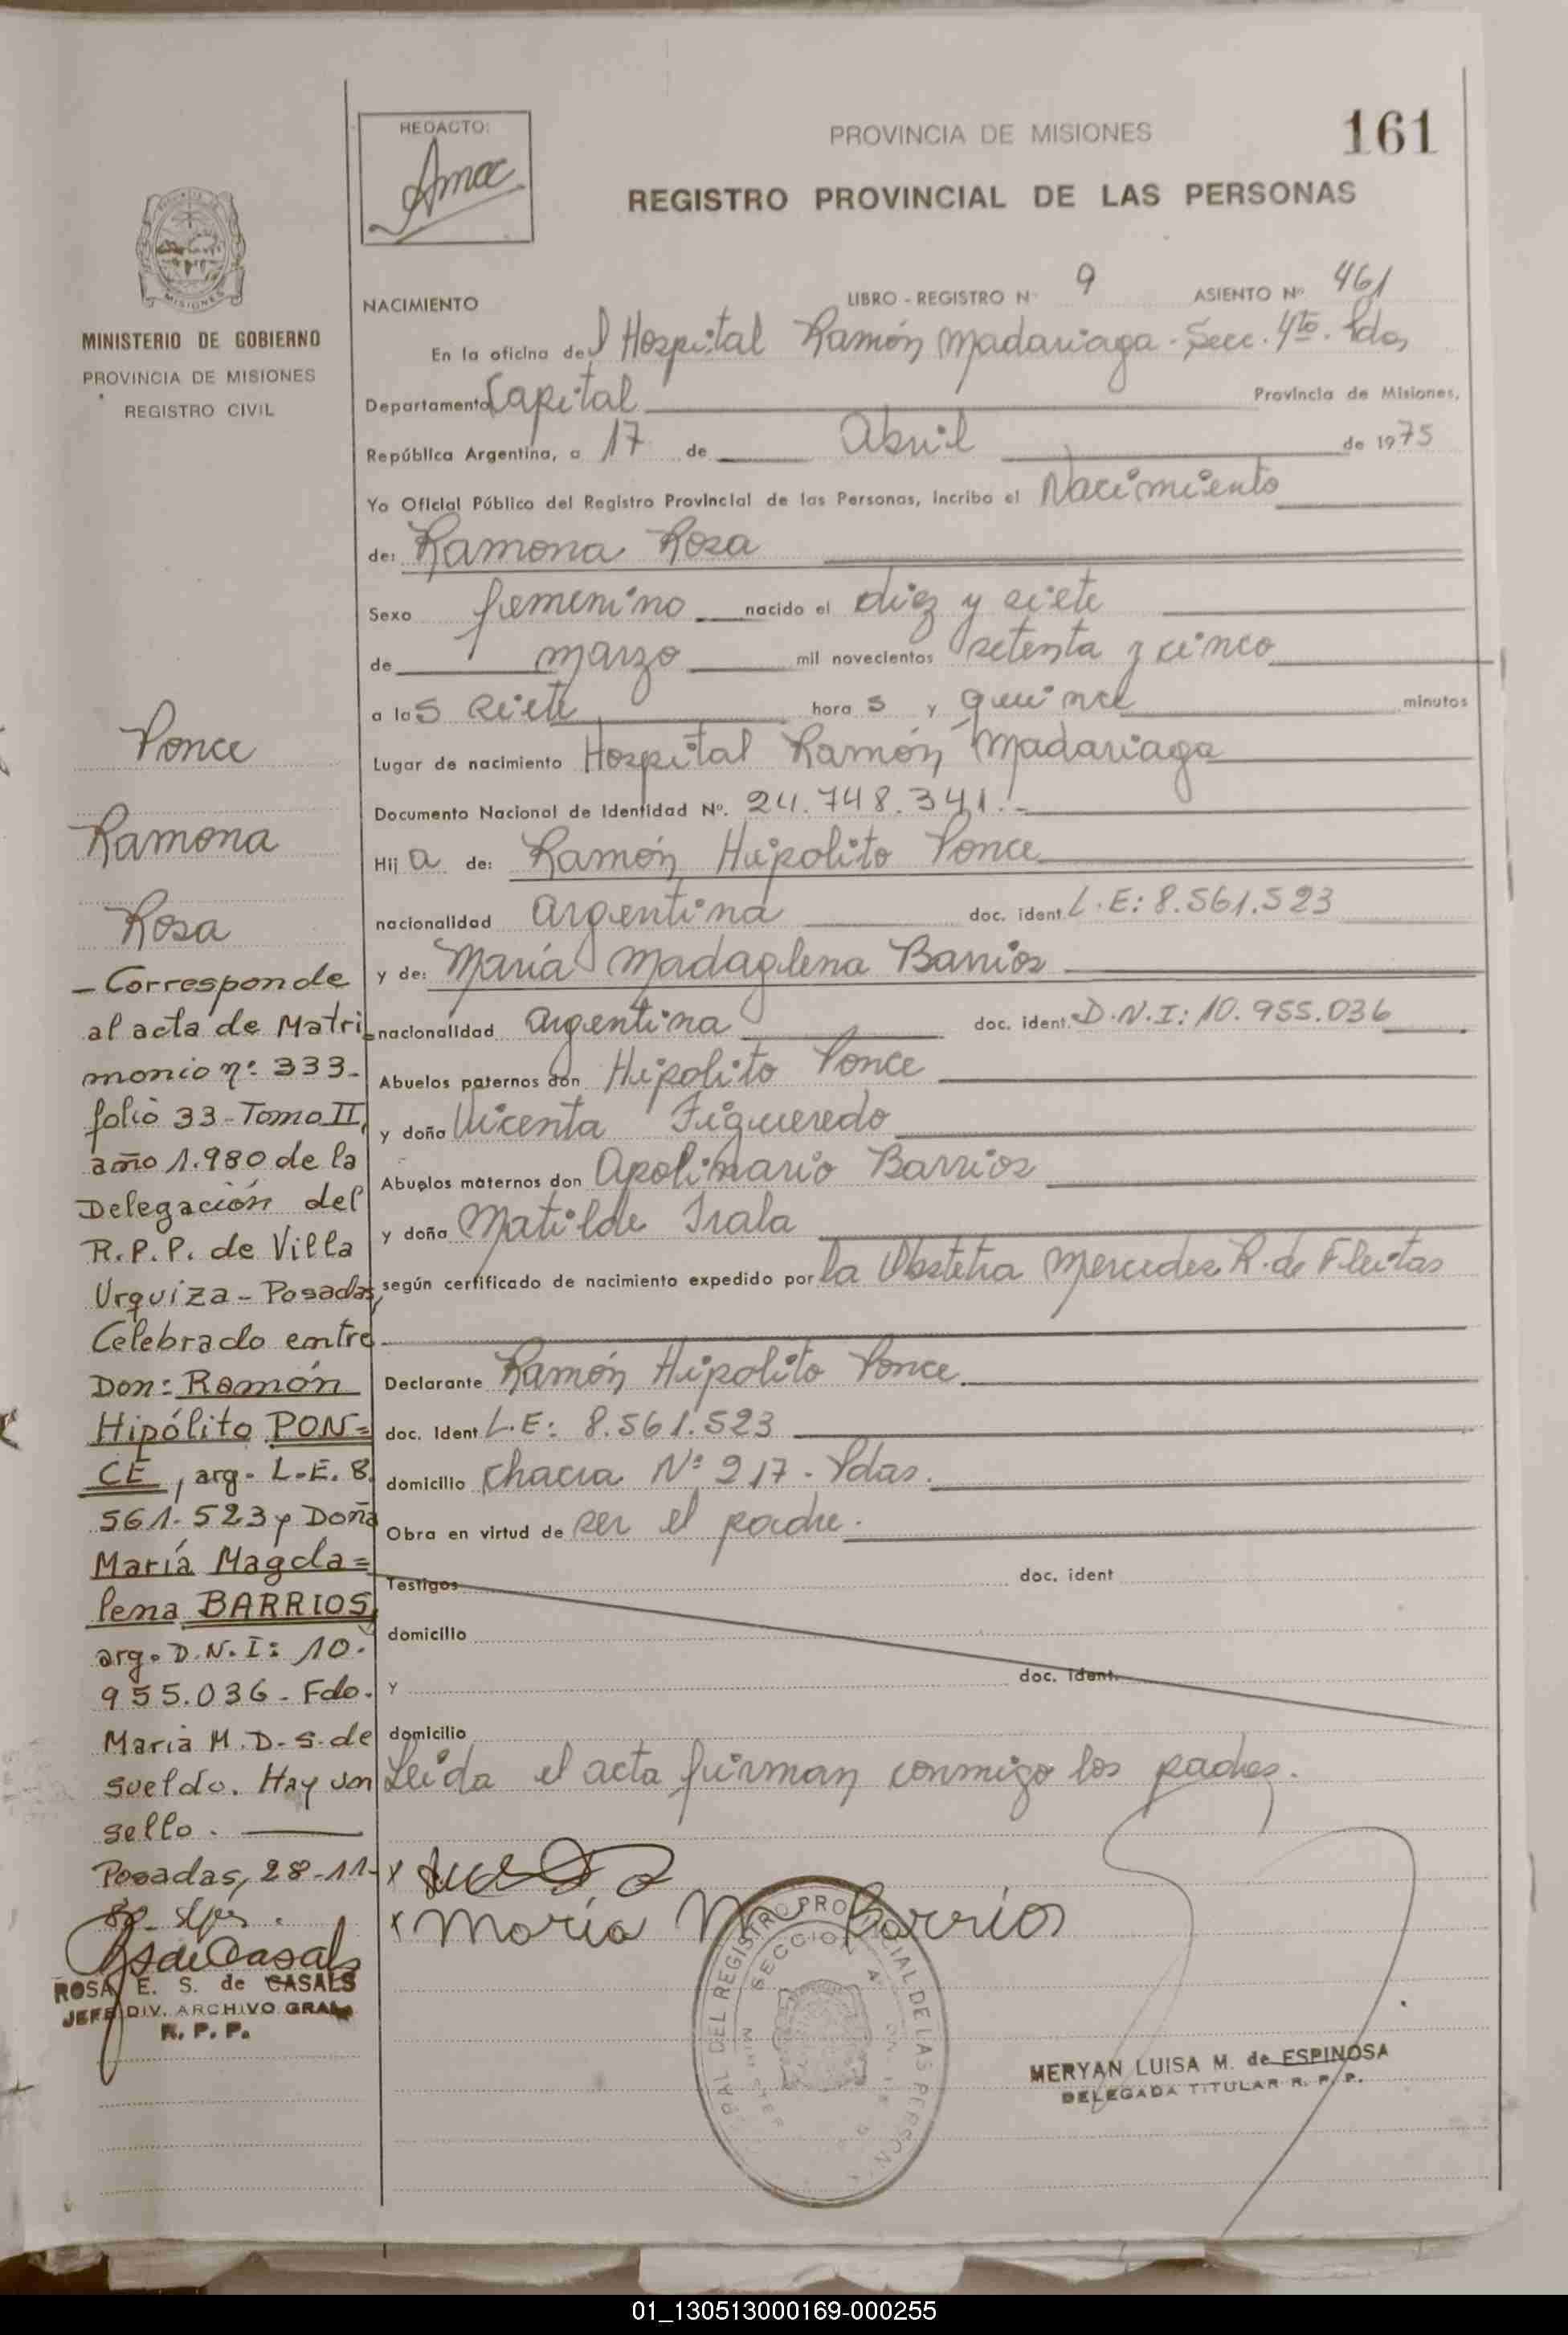 REDACTO:
PROVINCIA DE MISIONES
161
REGISTRO PROVINCIAL DE LAS PERSONAS
MISIONES
MINISTERIO DE GOBIERNO
PROVINCIA DE MISIONES
REGISTRO CIVIL
NACIMIENTO LIBRO - REGISTRO Nº 9 ASIENTO Nº 461
En la oficina del Hospital Ramón Madariaga - Secc. 4to. Pdas
Departamento Capital Provincia de Misiones,
República Argentina, a 17 de Abril de 1975
Yo Oficial Público del Registro Provincial de las Personas, incribo el Nacimiento
de: Ramona Rosa
Sexo femenino nacido el diez y siete
de marzo mil novecientos setenta y cinco
a las siete horas y quince minutos
Lugar de nacimiento Hospital Ramón Madariaga
Documento Nacional de Identidad Nº. 24.748.341.-
Hija de: Ramón Hipolito Ponce
nacionalidad argentina doc. ident. L.E: 8.561.523
y de: María Madaglena Barrios
nacionalidad argentina doc. ident. D.N.I: 10.955.036
Abuelos paternos don Hipolito Ponce
y doña Vicenta Figueredo
Abuelos maternos don Apolinario Barrios
y doña Matilde Irala
según certificado de nacimiento expedido por la Obstetra Mercedes R. de Fleitas
Declarante Ramón Hipolito Ponce
doc. Ident L.E: 8.561.523
domicilio Chacra Nº 217 - Pdas.
Obra en virtud de ser el padre.
Testigos doc. ident
domicilio
y doc. ident.
domicilio
Leida el acta firman conmigo los padres.
x
x María M Barrios
SECCION
MERYAN LUISA M. de ESPINOSA
DELEGADA TITULAR R. P. P.
Ponce
Ramona
Rosa
- Corresponde
al acta de Matri-
monio nº: 333-
folio 33 - Tomo II,
año 1.980 de la
Delegación del
R.P.P. de Villa
Urquiza - Posadas,
Celebrado entre
Don: Ramón
Hipólito PON=
CE, arg. L.E. 8.
561.523 y Doña
María Magda=
lena BARRIOS,
arg. D.N.I: 10.
955.036 - Fdo.
Maria M.D.S. de
sueldo. Hay un
sello.
Posadas, 28-11-
80-
ROSA E. S. de CASALS
JEFE DIV. ARCHIVO GRAL.
R. P. P.
01_130513000169-000255